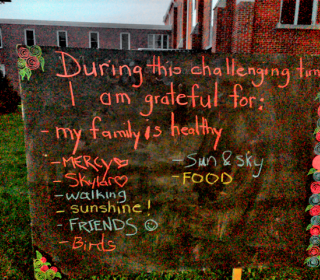 During this challenging tim
I am grateful for:
- my family is healthy
- MERCY
- Skylar
- walking
- sunshine!
- FRIENDS ☺
- Birds
- Sun & sky
- FOOD